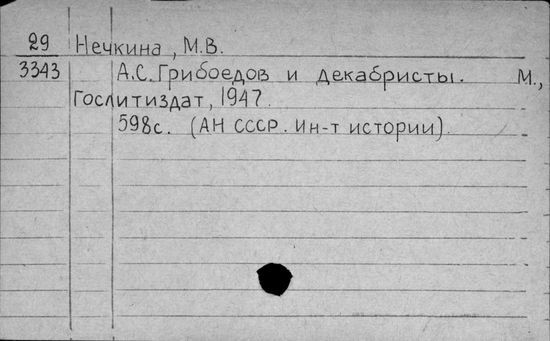 29 Нечкина, М.В.
3343 А.С. Грибоедов и декабристы. М.,
Гослитиздат, 1947.
598с. (АН СССР. Ин-т истории).